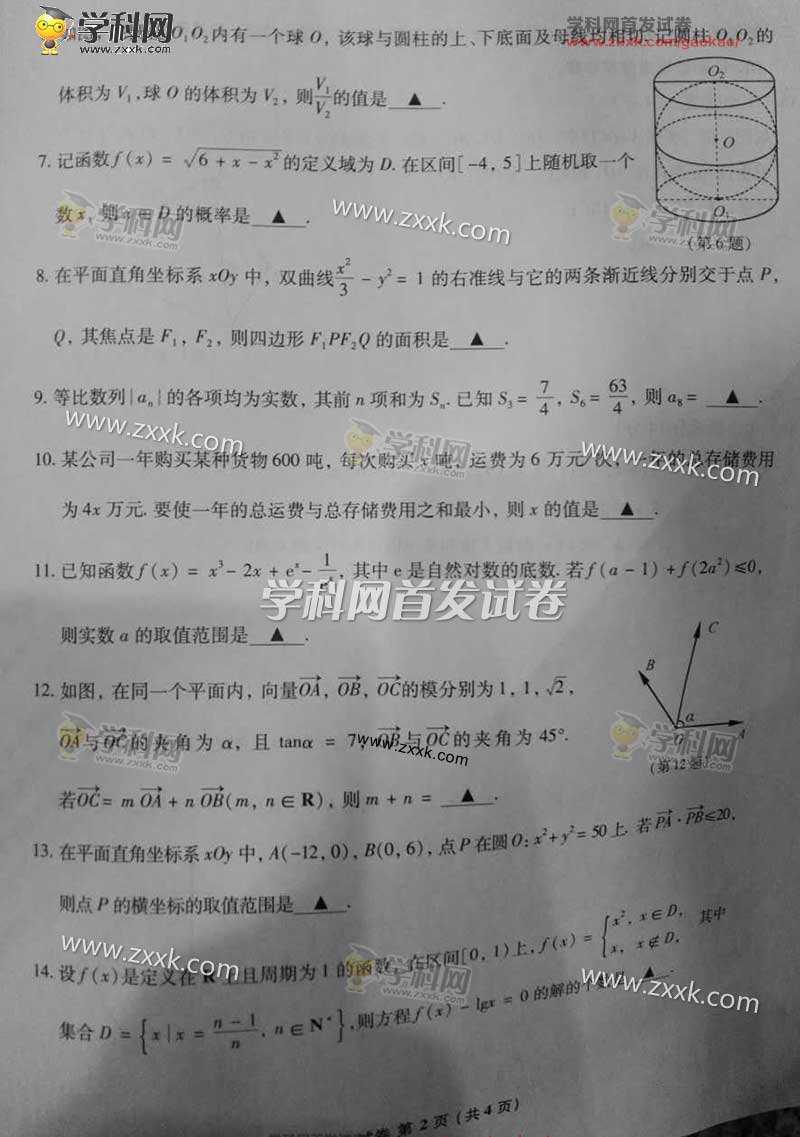 学科网
www.zxxk.com
学科网首发试卷
http://www.zxxk.com/gaokao/
O₁O₂内有一个球 O, 该球与圆柱的上、下底面及母线均相切. 记圆柱 O₁O₂的
体积为 V₁,球 O 的体积为 V₂, 则V₁/V₂的值是 ▲ .
O₂
O
O₁
(第 6 题)
7. 记函数f(x) = √(6 + x - x²)的定义域为 D. 在区间[-4, 5]上随机取一个
数 x, 则 x ∈ D 的概率是 ▲ .
学科网
www.zxxk.com
www.zxxk.com
学科网
www.zxxk.com
8. 在平面直角坐标系 xOy 中, 双曲线x²/3 - y² = 1 的右准线与它的两条渐近线分别交于点 P,
Q, 其焦点是 F₁, F₂, 则四边形 F₁PF₂Q 的面积是 ▲ .
9. 等比数列{aₙ}的各项均为实数, 其前 n 项和为 Sₙ. 已知 S₃ = 7/4, S₆ = 63/4, 则 a₈ = ▲ .
www.zxxk.com
学科网
www.zxxk.com
www.zxxk.com
10. 某公司一年购买某种货物 600 吨, 每次购买 x 吨, 运费为 6 万元/次, 一年的总存储费用
为 4x 万元. 要使一年的总运费与总存储费用之和最小, 则 x 的值是 ▲ .
11. 已知函数f(x) = x³ - 2x + eˣ - 1/eˣ, 其中 e 是自然对数的底数. 若f(a - 1) + f(2a²) ≤ 0,
则实数 a 的取值范围是 ▲ .
学科网首发试卷
12. 如图, 在同一个平面内, 向量OA→, OB→, OC→的模分别为 1, 1, √2,
OA→与OC→的夹角为 α, 且 tanα = 7, OB→与OC→的夹角为 45°.
若OC→ = m OA→ + n OB→(m, n ∈ R), 则 m + n = ▲ .
C
B
α
O
A
(第 12 题)
学科网
www.zxxk.com
www.zxxk.com
学科网
www.zxxk.com
13. 在平面直角坐标系 xOy 中, A(-12, 0), B(0, 6), 点 P 在圆 O: x² + y² = 50 上. 若PA→·PB→≤20,
则点 P 的横坐标的取值范围是 ▲ .
14. 设 f(x)是定义在 R 上且周期为 1 的函数, 在区间[0, 1)上, f(x) = {x², x ∈ D, x, x ∉ D, 其中
集合 D = {x | x = (n - 1)/n, n ∈ N*},则方程f(x) - lgx = 0 的解的个数是 ▲ .
www.zxxk.com
学科网
www.zxxk.com
www.zxxk.com
试卷 第 2 页 (共 4 页)